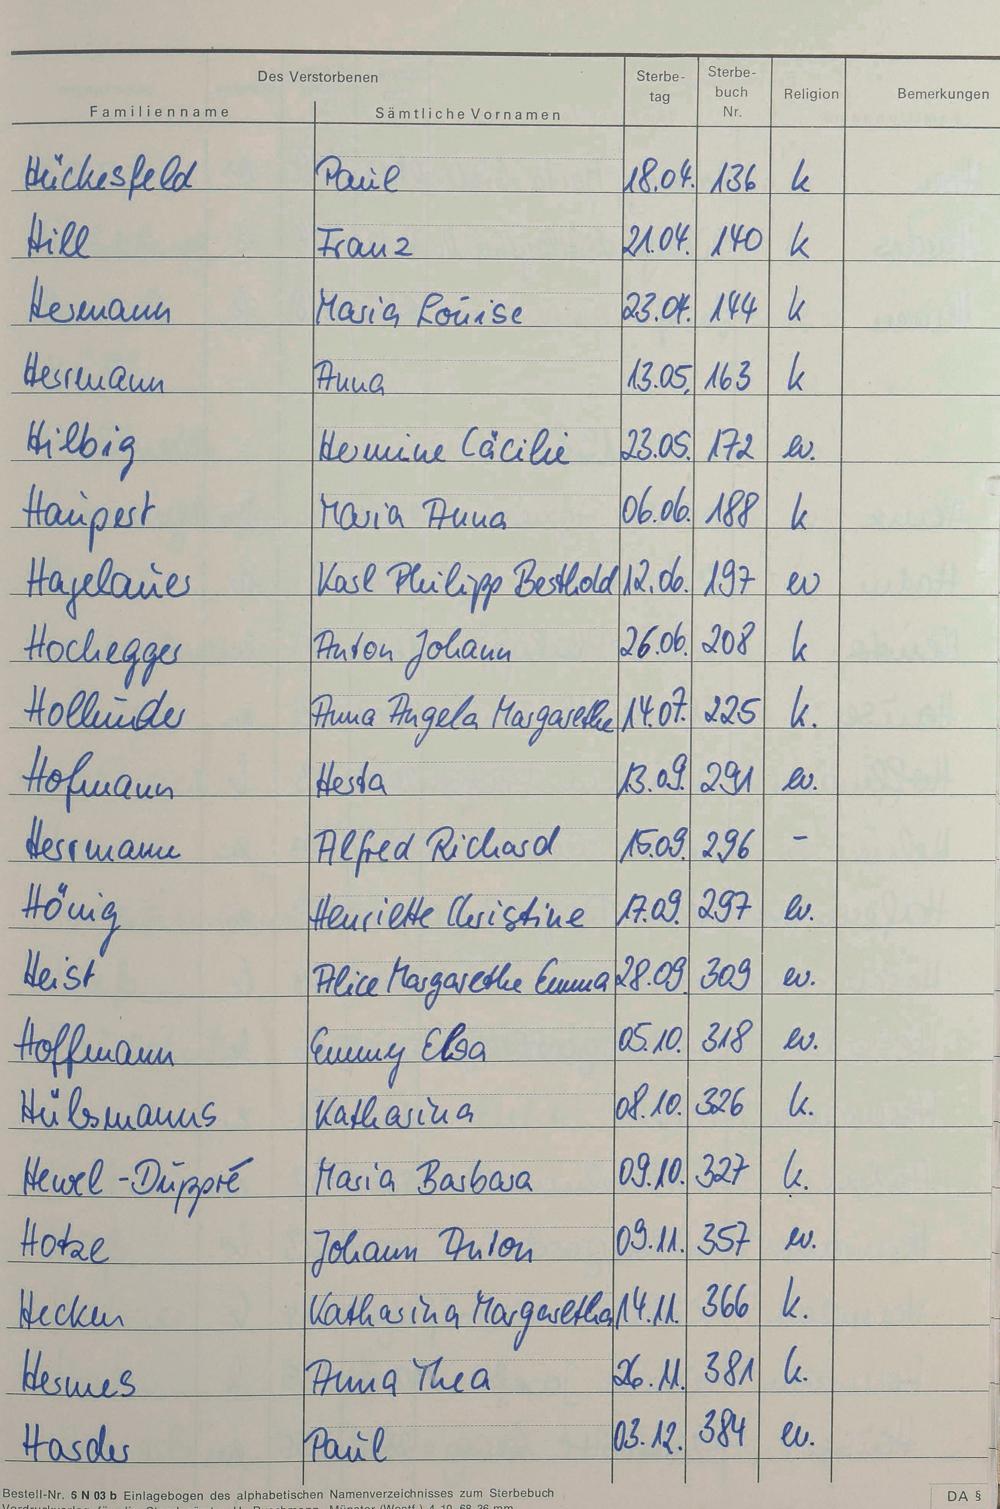 Des Verstorbenen
Familienname Sämtliche Vornamen Sterbe-tag Sterbe-buch Nr. Religion Bemerkungen
Hückesfeld Paul 18.04. 136 k
Hill Franz 21.04. 140 k
Hermann Maria Louise 23.04. 144 k
Herrmann Anna 13.05. 163 k
Hilbig Hermine Cäcilie 23.05. 172 ev.
Haupert Maria Anna 06.06. 188 k
Hagelauer Karl Philipp Berthold 12.06. 197 ev
Hochegger Anton Johann 26.06. 208 k
Holländer Anna Angela Margarethe 14.07. 225 k.
Hofmann Herta 13.09. 291 ev.
Herrmann Alfred Richard 15.09. 296 -
Hönig Henriette Christine 17.09. 297 ev.
Heist Alice Margarethe Emma 28.09. 309 ev.
Hoffmann Emmy Elsa 05.10. 318 ev.
Hülsmanns Katharina 08.10. 326 k.
Hewel-Düppré Maria Barbara 09.10. 327 k.
Hotze Johann Anton 09.11. 357 ev.
Hecken Katharina Margaretha 14.11. 366 k.
Hermes Anna Thea 26.11. 381 k.
Harder Paul 03.12. 384 ev.
Bestell-Nr. 5 N 03 b Einlagebogen des alphabetischen Namenverzeichnisses zum Sterbebuch
DA §